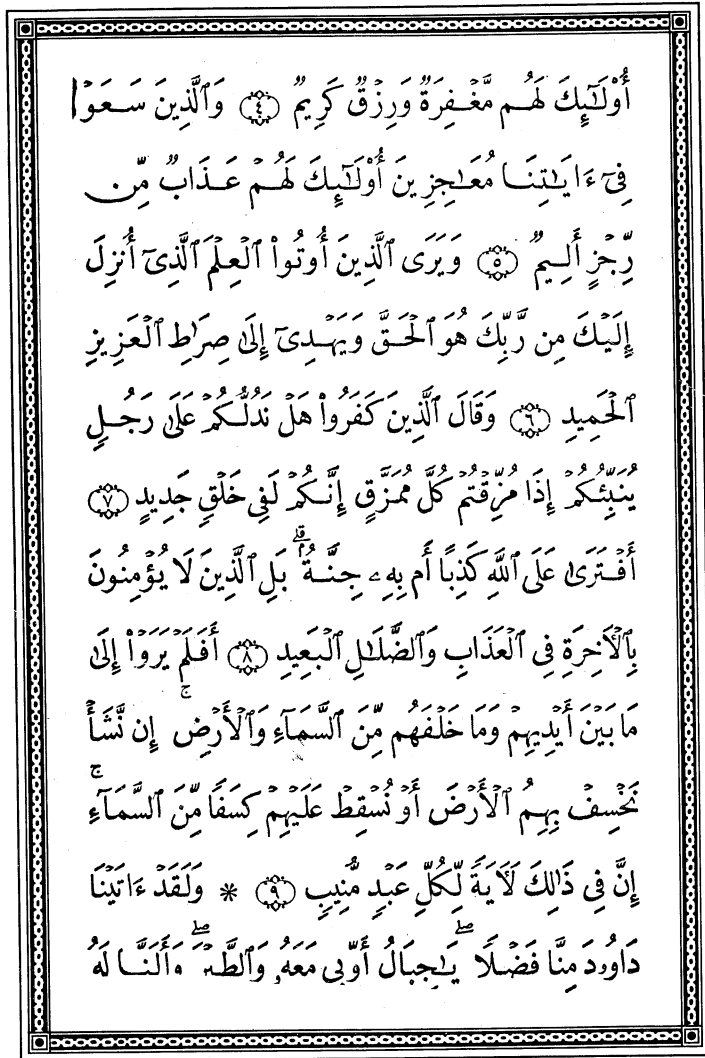 أُوْلَٰٓئِكَ لَهُم مَّغْفِرَةٌ وَرِزْقٌ كَرِيمٌ ﴿٤﴾ وَٱلَّذِينَ سَعَوْا
فِىٓ ءَايَٰتِنَا مُعَٰجِزِينَ أُوْلَٰٓئِكَ لَهُمْ عَذَابٌ مِّن
رِّجْزٍ أَلِيمٌ ﴿٥﴾ وَيَرَى ٱلَّذِينَ أُوتُوا۟ ٱلْعِلْمَ ٱلَّذِىٓ أُنزِلَ
إِلَيْكَ مِن رَّبِّكَ هُوَ ٱلْحَقَّ وَيَهْدِىٓ إِلَىٰ صِرَٰطِ ٱلْعَزِيزِ
ٱلْحَمِيدِ ﴿٦﴾ وَقَالَ ٱلَّذِينَ كَفَرُوا۟ هَلْ نَدُلُّكُمْ عَلَىٰ رَجُلٍ
يُنَبِّئُكُمْ إِذَا مُزِّقْتُمْ كُلَّ مُمَزَّقٍ إِنَّكُمْ لَفِى خَلْقٍ جَدِيدٍ ﴿٧﴾
أَفْتَرَىٰ عَلَى ٱللَّهِ كَذِبًا أَم بِهِۦ جِنَّةٌۢ ۗ بَلِ ٱلَّذِينَ لَا يُؤْمِنُونَ
بِٱلْأَخِرَةِ فِى ٱلْعَذَابِ وَٱلضَّلَٰلِ ٱلْبَعِيدِ ﴿٨﴾ أَفَلَمْ يَرَوْا۟ إِلَىٰ
مَا بَيْنَ أَيْدِيهِمْ وَمَا خَلْفَهُم مِّنَ ٱلسَّمَآءِ وَٱلْأَرْضِ ۚ إِن نَّشَأْ
نَخْسِفْ بِهِمُ ٱلْأَرْضَ أَوْ نُسْقِطْ عَلَيْهِمْ كِسَفًا مِّنَ ٱلسَّمَآءِ ۚ
إِنَّ فِى ذَٰلِكَ لَأَيَةً لِّكُلِّ عَبْدٍ مُّنِيبٍ ﴿٩﴾ * وَلَقَدْ ءَاتَيْنَا
دَاوُۥدَ مِنَّا فَضْلًا ۖ يَٰجِبَالُ أَوِّبِى مَعَهُۥ وَٱلطَّيْرَ ۖ وَأَلَنَّا لَهُ